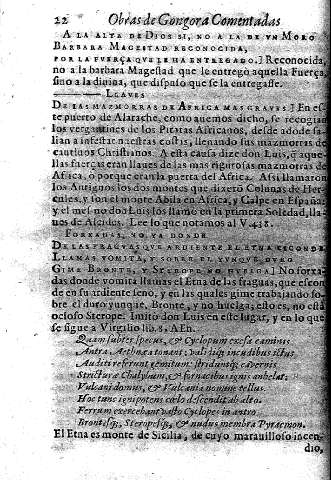 22 Obras de Gongora Comentadas
A LA ALTA DE DIOS SI, NO A LA DE VN MORO
BARBARA MAGESTAD RECONOCIDA,
POR LA FUERÇA QUE LE HA ENTREGADO.] Reconocida,
no a la barbara Magestad que le entregò aquella Fuerça,
sino a la divina, que dispuso que se la entregasse.
LLAVES
DE LAS MAZMORRAS DE AFRICA MAS GRAVES.] En es-
te puerto de Alarache, como auemos dicho, se recogian
los vergantines de los Piratas Africanos, desde adóde sa-
lian a infestar nuestras costas, llenando sus mazmorras de
cautivos Christianos. A esta causa dize don Luis, q̃ aque-
llas fuerças eran llaues de las mas seguras mazmorras de
Africa, o porque eran la puerta del Africa. Assi llamaron
los Antiguos los dos montes que dixerõ Colunas de Her-
cules, y son el monte Abila en Africa, y Calpe en España;
y el mesmo don Luis los llamò en la primera Soledad, lla-
ues de Alcides. Lee lo que notamos al V. 418.
FORJADAS, NO YA DONDE
DE LAS FRAGVAS QUE ARDIENTE EL ETNA ESCONDE
LLAMAS VOMITA, Y SOBRE EL YUNQUE DURO
GIME BRONTE, Y STEROPE NO HUELGA] No forxa-
das donde vomita llamas el Etna de las fraguas, que escon-
de en su ardiente seno, y en las quales gime trabajando so-
bre el duro yunque, Bronte, y no huelga, esto es, no està
ocioso Sterope. Imitò don Luis en este lugar, y en lo que
se sigue a Virgilio lib. 8. AEn.
Quam subter specus, & Cyclopum exesa caminis
Antra, Aethnea tonant, validiq; incudibus ictus
Auditi referunt gemitum: striduntq; cavernis
Stricturæ Chalybum, & fornacibus ignis anhelat;
Vulcani domus, & Vulcania nomine tellus.
Hoc tunc ignipotens cœlo descendit ab alto.
Ferrum exercebant vasto Cyclopes in antro
Brontesq;, Steropesq;, & nudus membra Pyracmon.
El Etna es monte de Sicilia, de cuyo maravilloso incen-
dio,